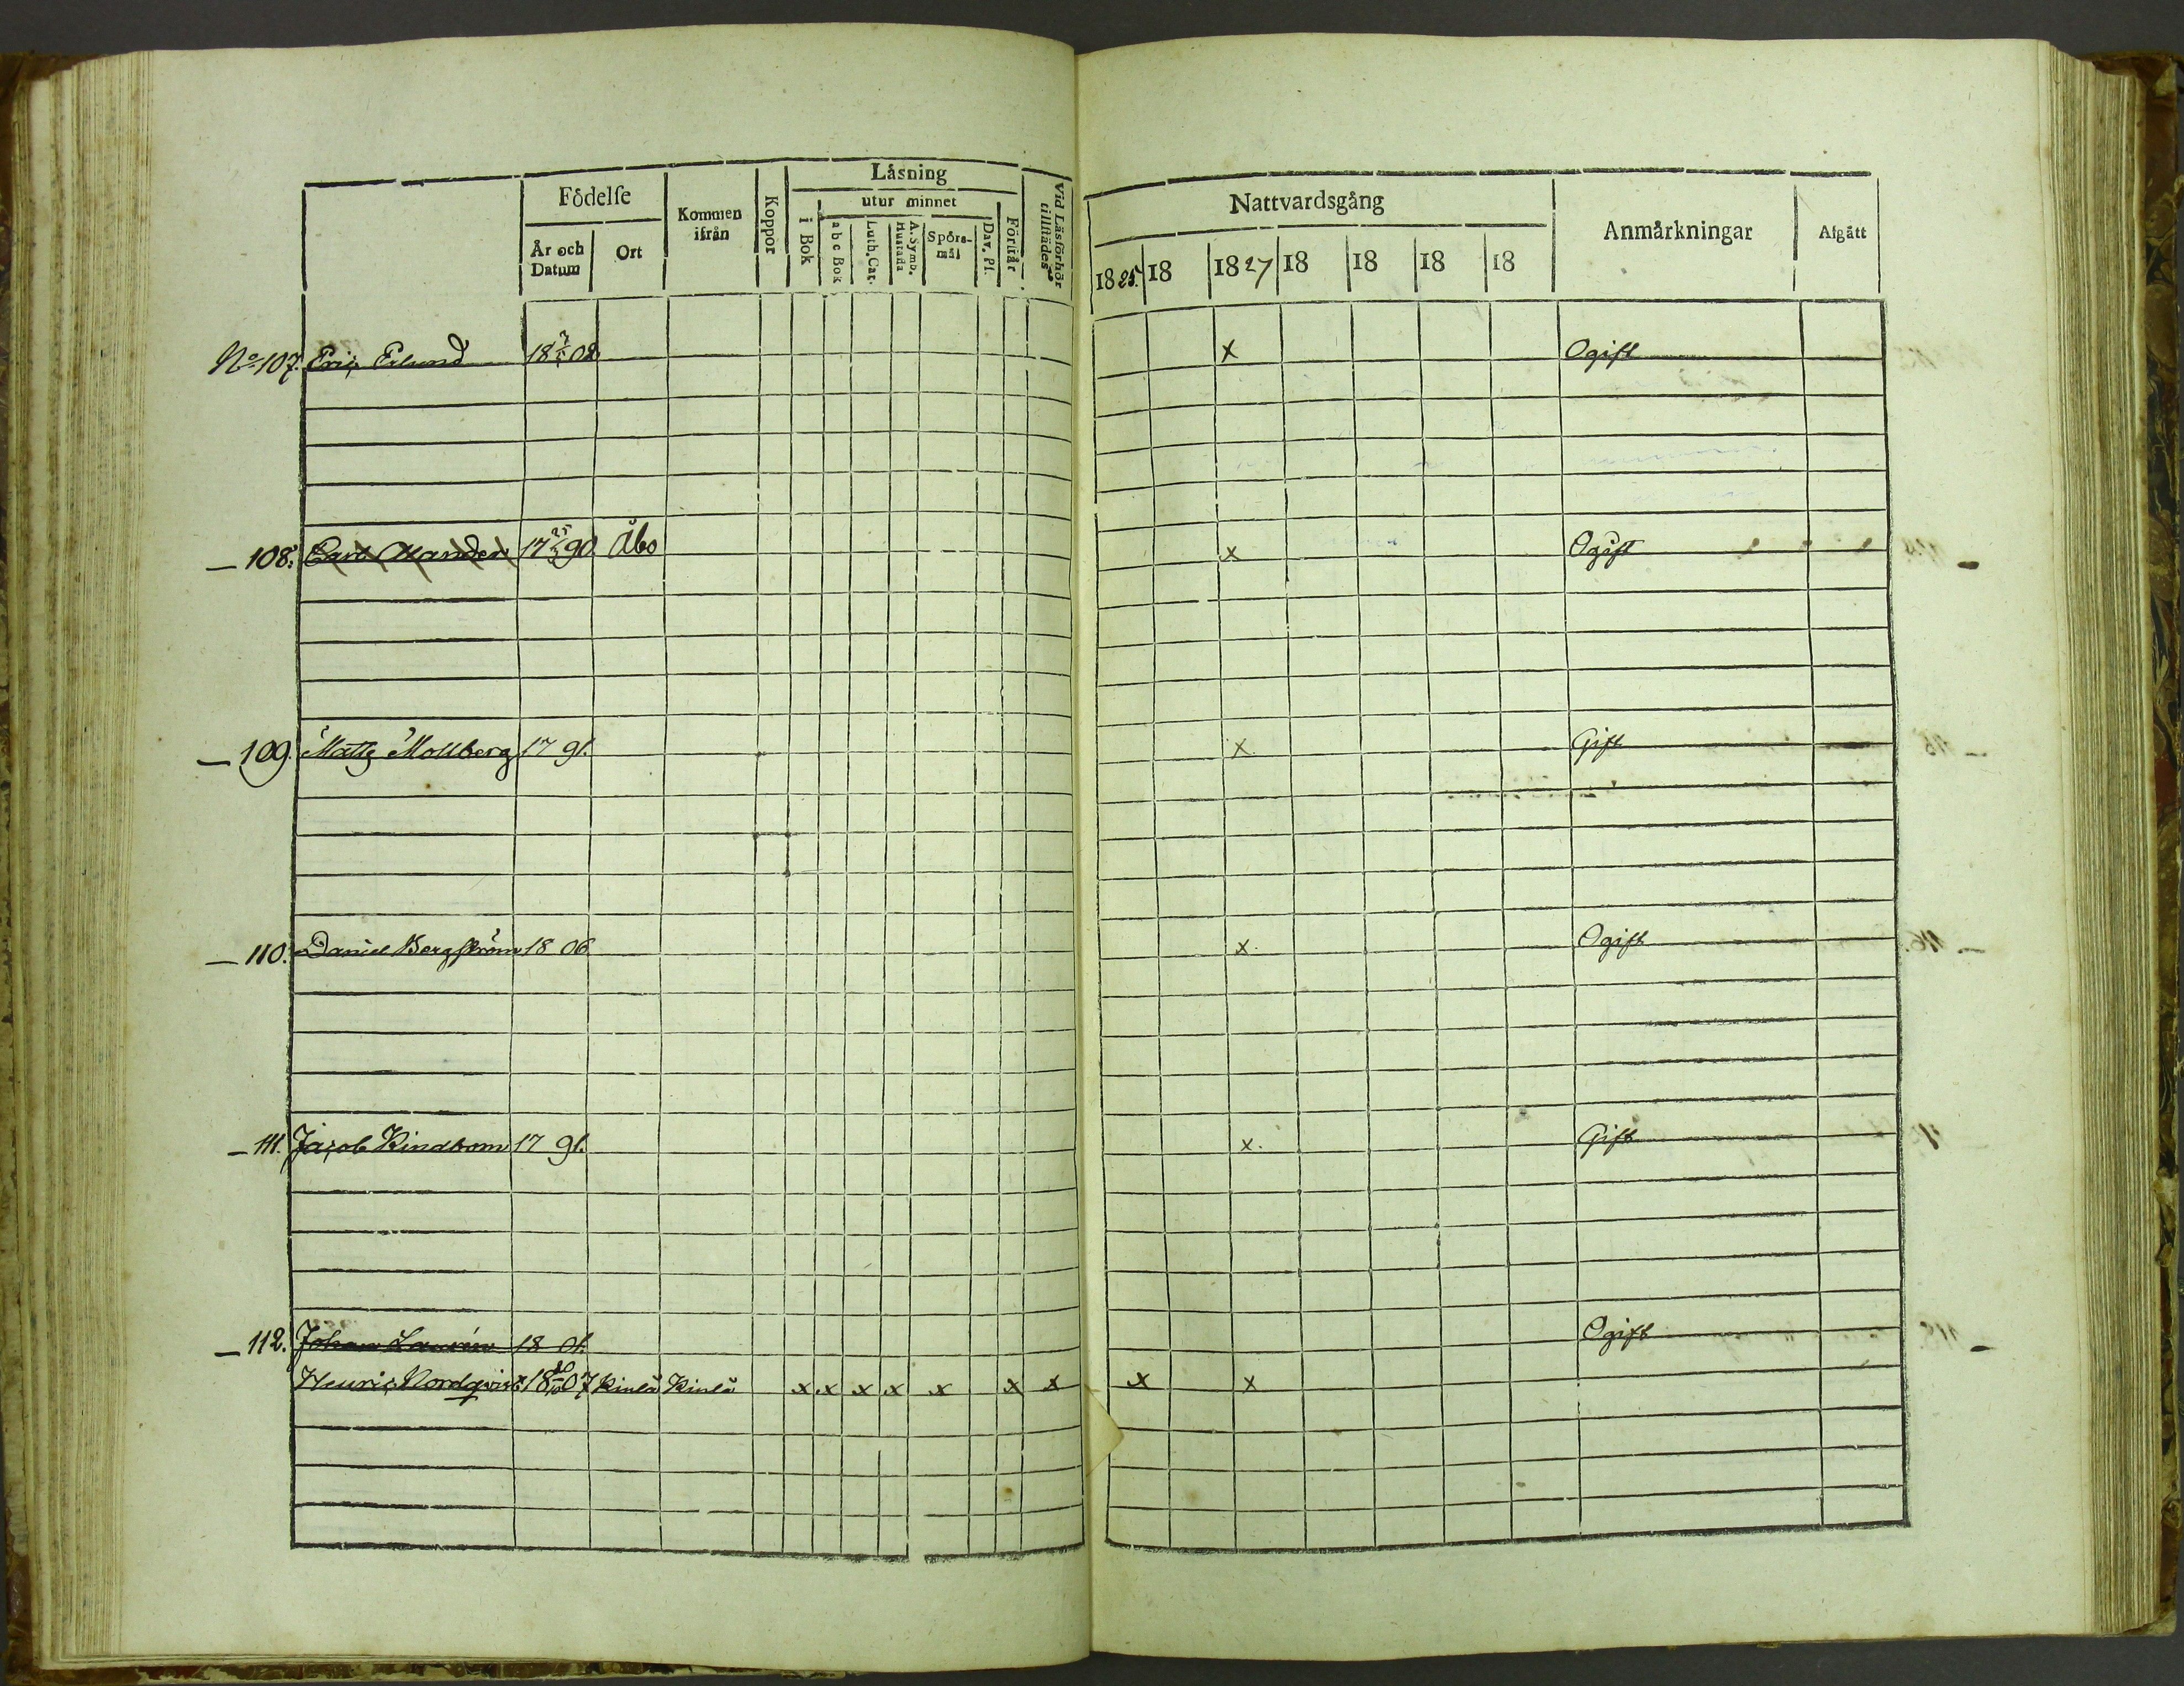 Födelse
Kommen ifrån
Koppor
Läsning
utur minnet
Vid Läsförhör tillstädes
År och Datum
Ort
i Bok
a b c Bok
Luth. Cat.
A. Symb. Hustafla
Spörsmål
Dav. Ps.
Förstår
Nattvardsgång
Anmärkningar
Afgått
1825. 18 1827 18 18 18 18
No 107. Eric Erlund 18 08 x Ogift
108. Carl Mander 17 90 Åbo x Ogift
109. Matts Mollberg 17 91. x Gift
110. Daniel Bergström 18 06 x Ogift
111. Jacob Kindbom 17 91. x Gift
112. Johan 18 01. Ogift
Henric Nordqvist 18 20/10 07 Kiulå Kiulå x x x x x x x x x